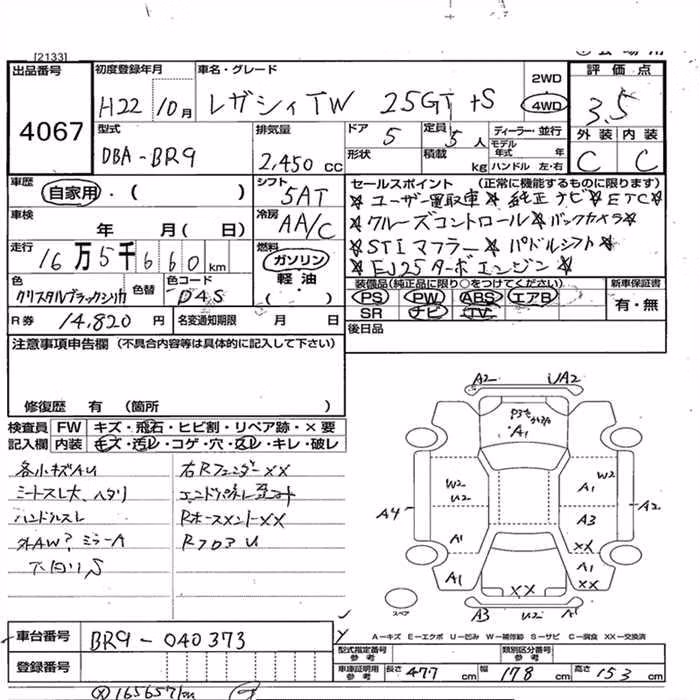 [2133]
出品番号
4067
初度登録年月
H22 10月
車名・グレード
レガシィTW 25GT +S
2WD
4WD
評価点
3.5
外装 内装
C C
型式
DBA-BR9
排気量
2,450 cc
ドア
5
定員
5人
ディーラー・並行
モデル年式 年
形状
積載 kg
ハンドル 左・右
車歴
自家用・( )
シフト
5AT
セールスポイント (正常に機能するものに限ります)
☆ユーザー買取車☆純正ナビ☆ETC☆
☆クルーズコントロール☆バックカメラ☆
☆STIマフラー☆パドルシフト☆
☆EJ25ターボエンジン☆
車検
年 月(日)
冷房
AA/C
走行
16万5千660km
燃料
ガソリン
軽油
( )
色
クリスタルブラックシリカ
色替
色コード
D4S
装備品(純正品に限り○をつけてください)
PS PW ABS エアB
SR ナビ TV
新車保証書
有・無
R券 14,820円
名変通知期限 月 日
後日品
注意事項申告欄 (不具合内容等は具体的に記入して下さい)
修復歴 有 (箇所 )
検査員記入欄
FW キズ・飛石・ヒビ割・リペア跡・×要
内装 キズ・汚レ・コゲ・穴・スレ・キレ・破レ
各小キズAU
シートスレ大、ハタリ
ハンドルスレ
外AW? ミラーA
下回りS
右Rフェンダー××
エンドパネル
Rホースメント××
RフロアU
A2 UA2
A1
W2
U2
A1
W2
A4
A3
A2
A1
××
A1
A1
××
××
スペア
A3 U2 A1
A-キズ E-エクボ U-凹み W-補修跡 S-サビ C-腐食 XX-交換済
車台番号
BR9-040373
登録番号
型式指定番号
参考
類別区分番号
参考
車庫証明用
参考
長さ 477 cm 幅 178 cm 高さ 153 cm
165657km